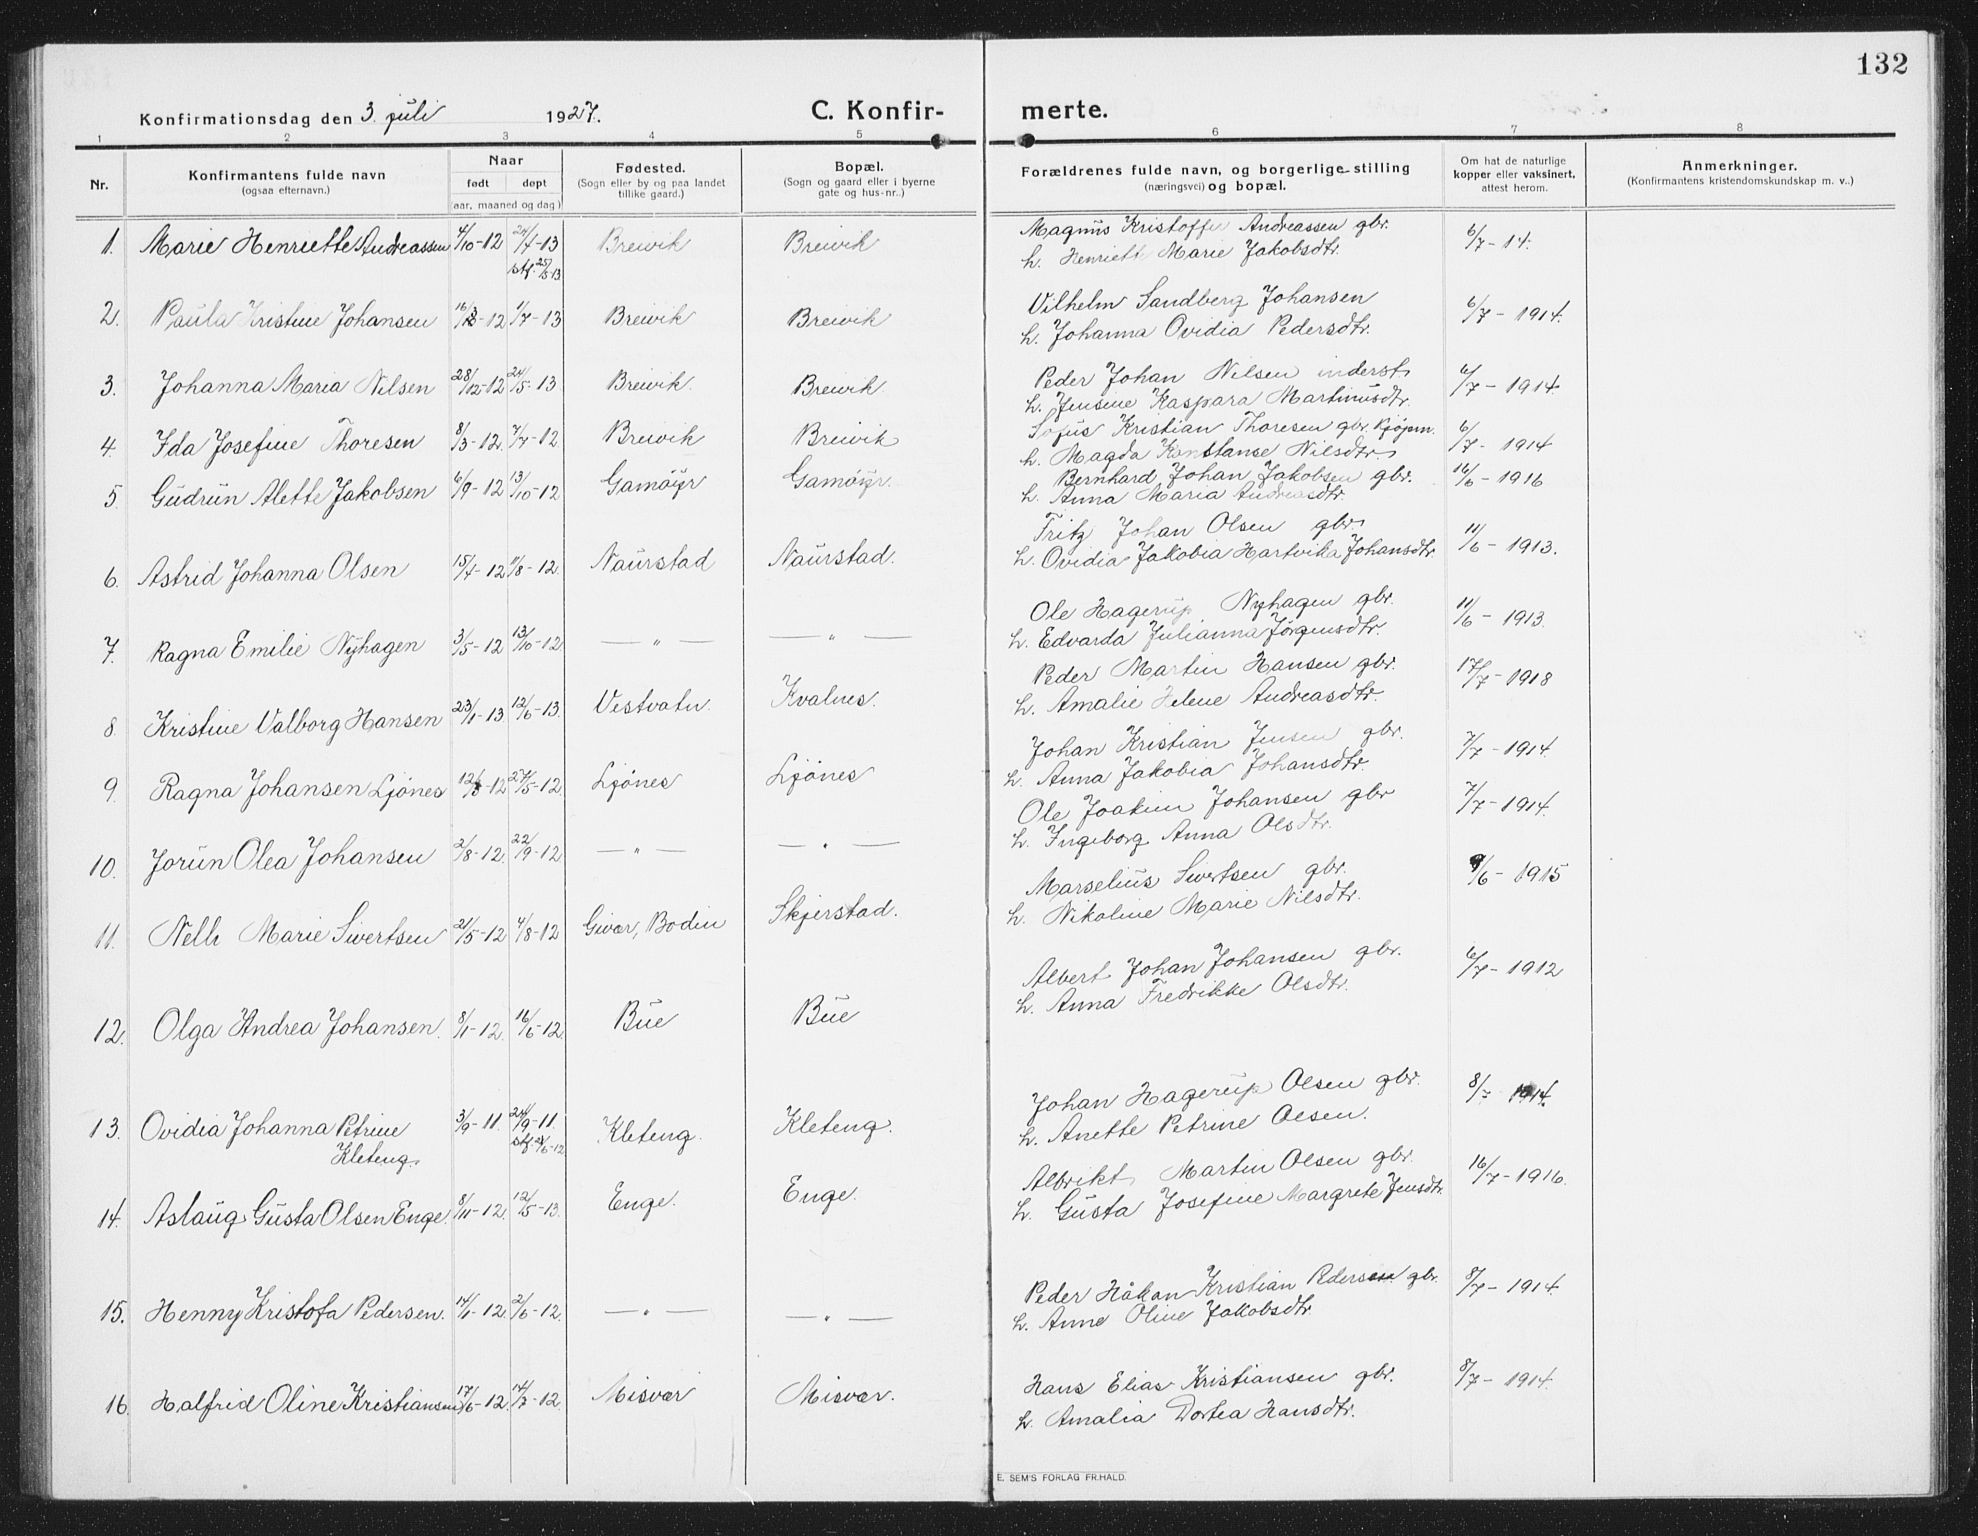 132
Konfirmationsdag den 3. juli 1927. C. Konfirmerte.
1 2 3 4 5 6 7 8
Nr.
Konfirmantens fulde navn
(ogsaa efternavn.)
Naar
født døpt
(aar, maaned og dag)
Fødested.
(Sogn eller by og paa landet
tillike gaard.)
Bopæl.
(Sogn og gaard eller i byerne
gate og hus-nr.)
Forældrenes fulde navn, og borgerlige stilling
(næringsvei) og bopæl.
Om hat de naturlige
kopper eller vaksinert,
attest herom.
Anmerkninger.
(Konfirmantens kristendomskundskap m. v.)
1. Marie Henriette Andreassen 4/10-12 24/4-13 Breivik Breivik Magnus Kristoffer Andreassen gbr. 6/7-14.
stf. 25/5-13 h. Henriett Marie Jakobsdtr.
2. Paula Kristine Johansen 16/12-12 1/7-13 Breivik Breivik Vilhelm Sandberg Johansen 6/7-1914.
h. Johanna Ovidia Pedersdtr.
3. Johanna Maria Nilsen 28/12-12 24/5-13 Breivik Breivik Peder Johan Nilsen inderst 6/7-1914
h. Jensine Kaspara Martinusdtr.
4. Ida Josefine Thoresen 8/3-12. 7/7-12 Breivik Breivik Sofus Kristian Thoresen gbr. 6/7-1914
h. Magda Konstanse Nilsdtr.
5. Gudrun Alette Jakobsen 6/9-12 13/10-12 Gamøyr Gamøyr. Bernhard Johan Jakobsen gbr. 16/6-1916
h. Anna Maria Andreasdtr.
6. Astrid Johanna Olsen 15/4-12 11/8-12. Naurstad Naurstad. Fritz Johan Olsen gbr. 11/6-1913.
h. Ovidia Jakobia Hartvika Johansdtr.
7. Ragna Emilie Nyhagen 3/5-12 13/10-12 — " — — " — Ole Hagerup Nyhagen gbr. 11/6-1913.
h. Edvarda Julianna Jørgensdtr.
8. Kristine Valborg Hansen 23/1-13 12/6-13. Vestvatn. Kvalnes. Peder Martin Hansen gbr. 17/7-1918
h. Amalie Helene Andreasdtr.
9. Ragna Johansen Ljönes 12-12 27/5-12. Ljönes Ljönes Johan Kristian Jensen gbr. 7/7-1914.
h. Anna Jakobia Johansdtr.
10. Jorun Olea Johansen 2/8-12. 22/9-12 — " — — " — Ole Joakim Johansen gbr 7/7-1914.
h. Ingeborg Anna Olsdtr.
11. Nelli Marie Sivertsen 21/5-12 4/8-12 Givær, Bodin Skjerstad. Marselius Sivertsen gbr. 9/6-1915
h. Nikoline Marie Nilsdtr.
12. Olga Andrea Johansen. 8/1-12. 16/6-12. Bue Bue Albert Johan Johansen gbr. 6/7-1912
h. Anna Fredrikke Olsdtr.
13. Ovidia Johanna Petrine 3/9-11. 24/9-11. Kleteng. Kleteng. Johan Hagerup Olsen gbr. 8/7 1914.
Kleteng. stf. /6-12 h. Anette Petrine Olsen.
14. Aslaug Gusta Olsen Enge. 8/11-12. 12/5-13. Enge. Enge. Albrikt Martin Olsen gbr. 16/7-1916.
h. Gusta Josefine Margrete Jensdtr.
15. Henny Kristofa Pedersen. 14/1-12. 2/6-12. — " — — " — Peder Håkan Kristian Pedersen gbr. 8/7-1914.
h. Anne Oline Jakobsdtr.
16. Halfrid Oline Kristiansen 17/6-12. 14/7-12. Misvær Misvær. Hans Elias Kristiansen gbr. 8/7-1914.
h. Amalia Dortea Hansdtr.
E. SEM'S FORLAG FR.HALD.